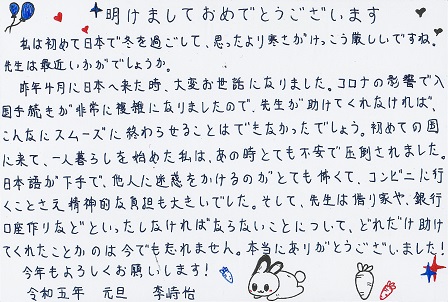 明けましておめでとうございます
私は初めて日本で冬を過ごして、思ったより寒さがけっこう厳しいですね。
先生は最近いかがでしょうか。
昨年4月に日本へ来た時、大変お世話になりました。コロナの影響で入
国手続きが非常に複雑になりましたので、先生が助けてくれなければ、
こんなにスムーズに終わらせることはできなかったでしょう。初めての国
に来て、一人暮らしを始めた私は、あの時とても不安で圧倒されました。
日本語が下手で、他人に迷惑をかけるのがとても怖くて、コンビニに行
くことさえ精神的な負担も大きいでした。そして、先生は借り家や、銀行
口座作りなど"といったしなければならないことについて、どれだけ助け
てくれたことかのは今でも忘れません。本当にありがとうございました!
今年もよろしくお願いします!
令和五年 元旦 李 怡